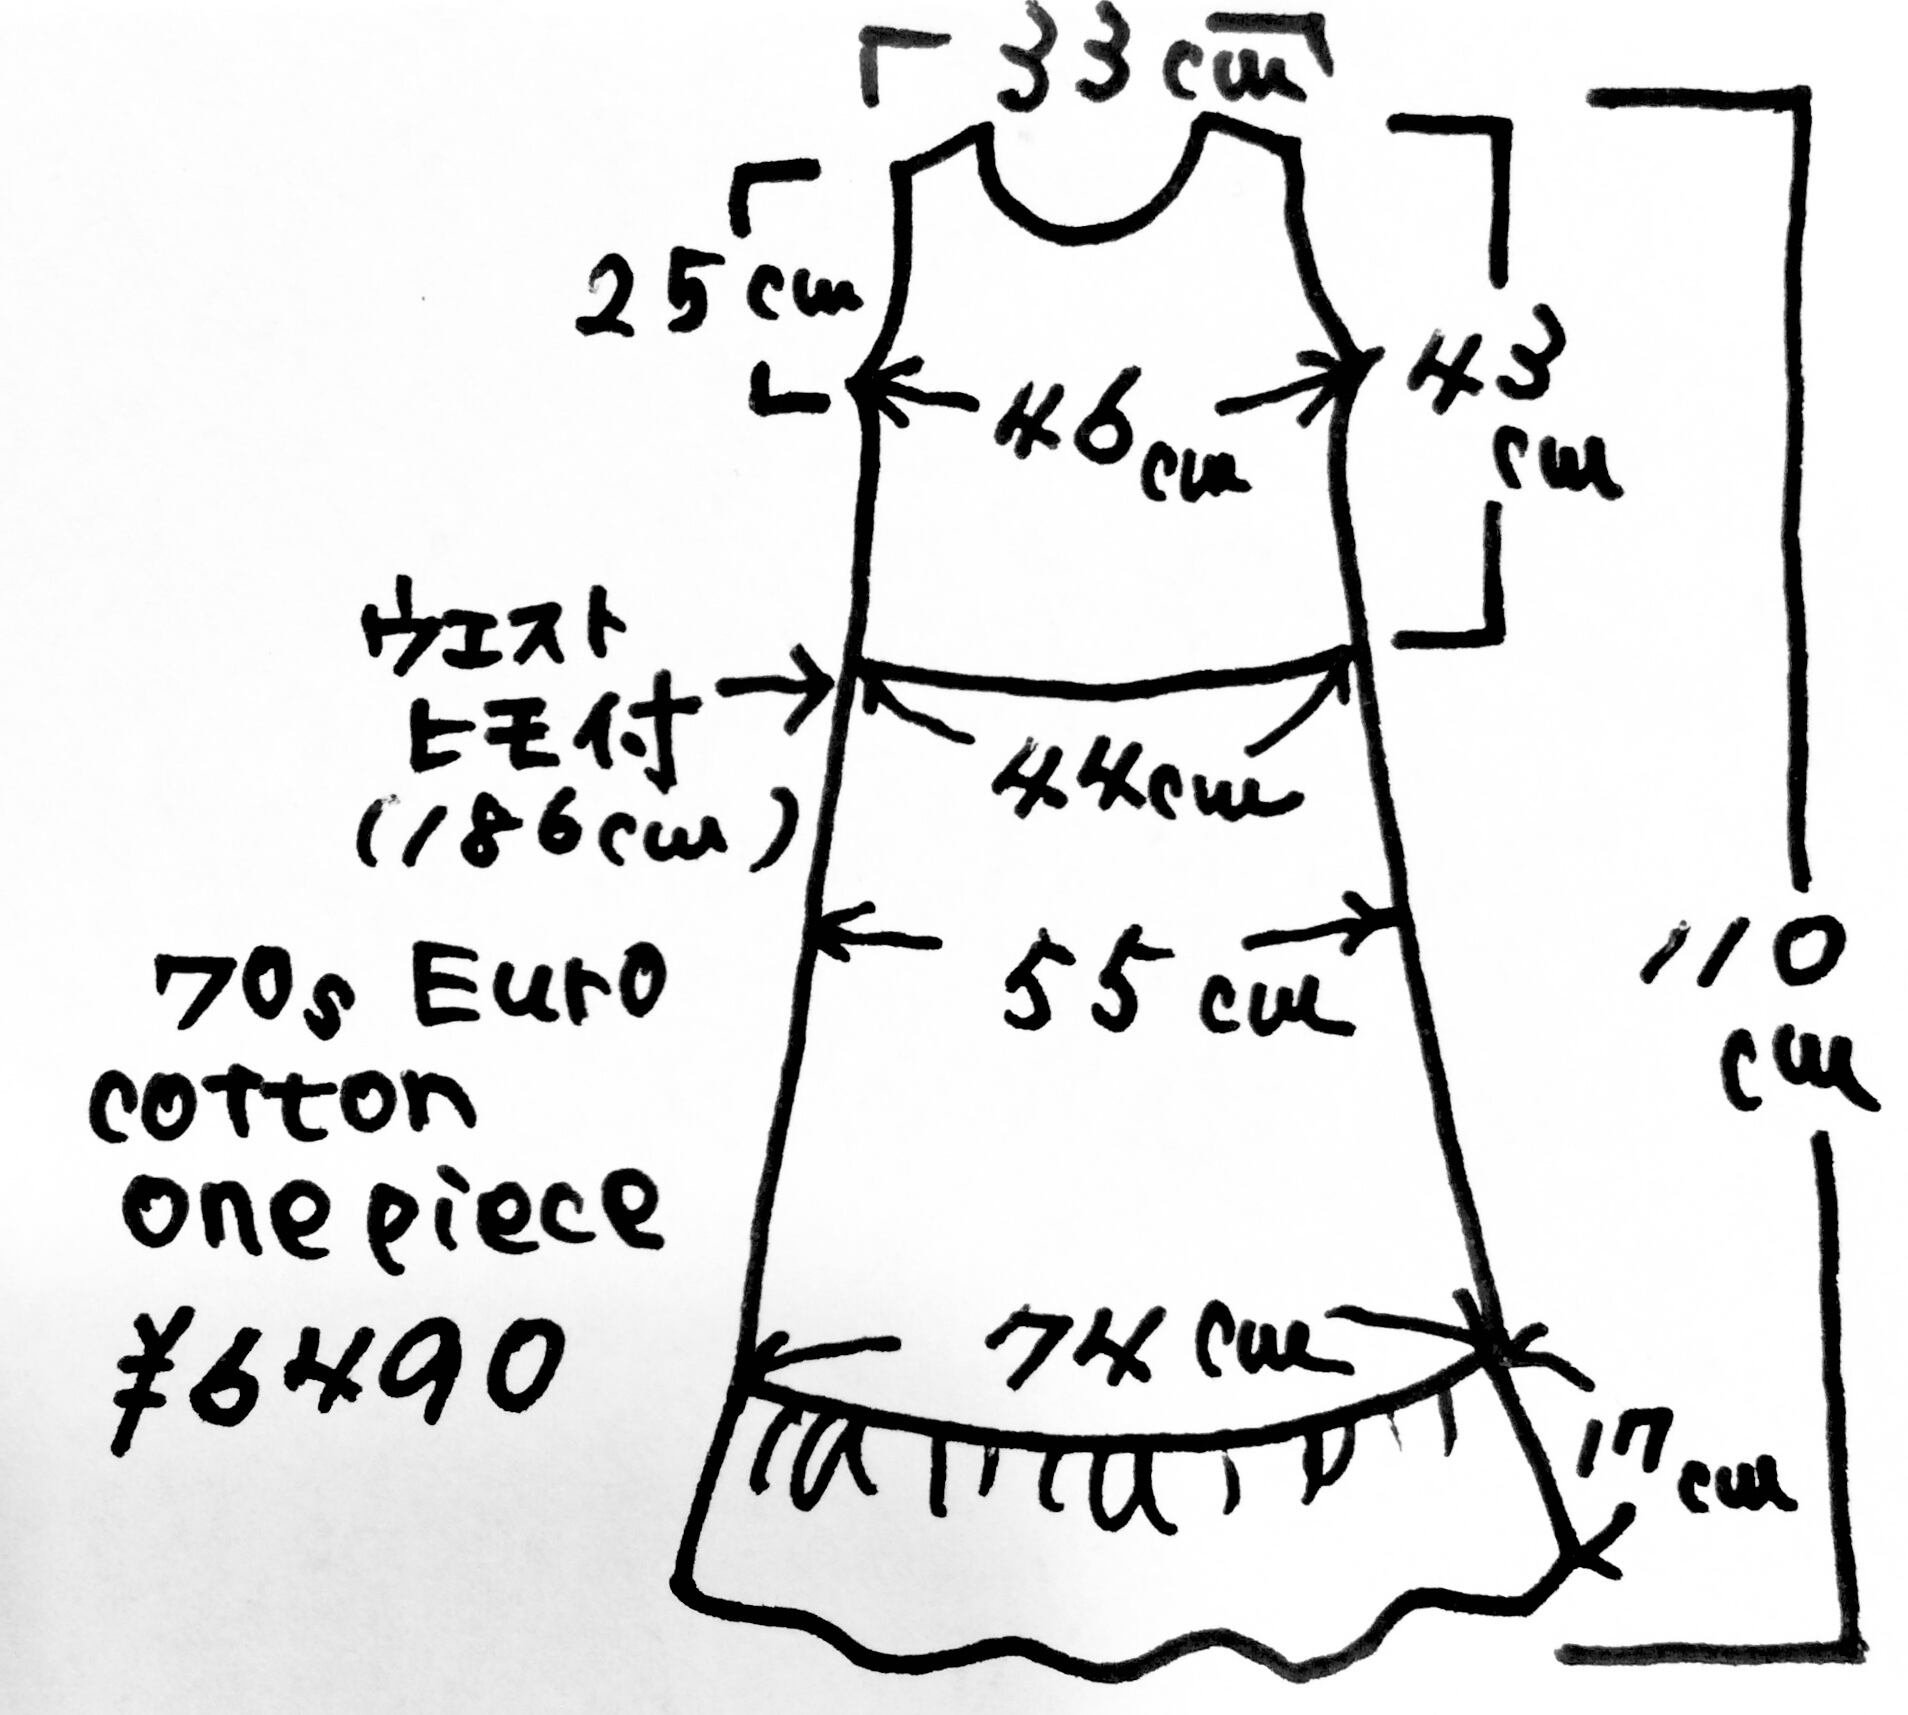 33cm
25cm
46cm
43
cm
ウエスト
ヒモ付
(186cm)
44cm
55cm
110
cm
70s Euro
cotton
one piece
¥6490
74cm
17cm